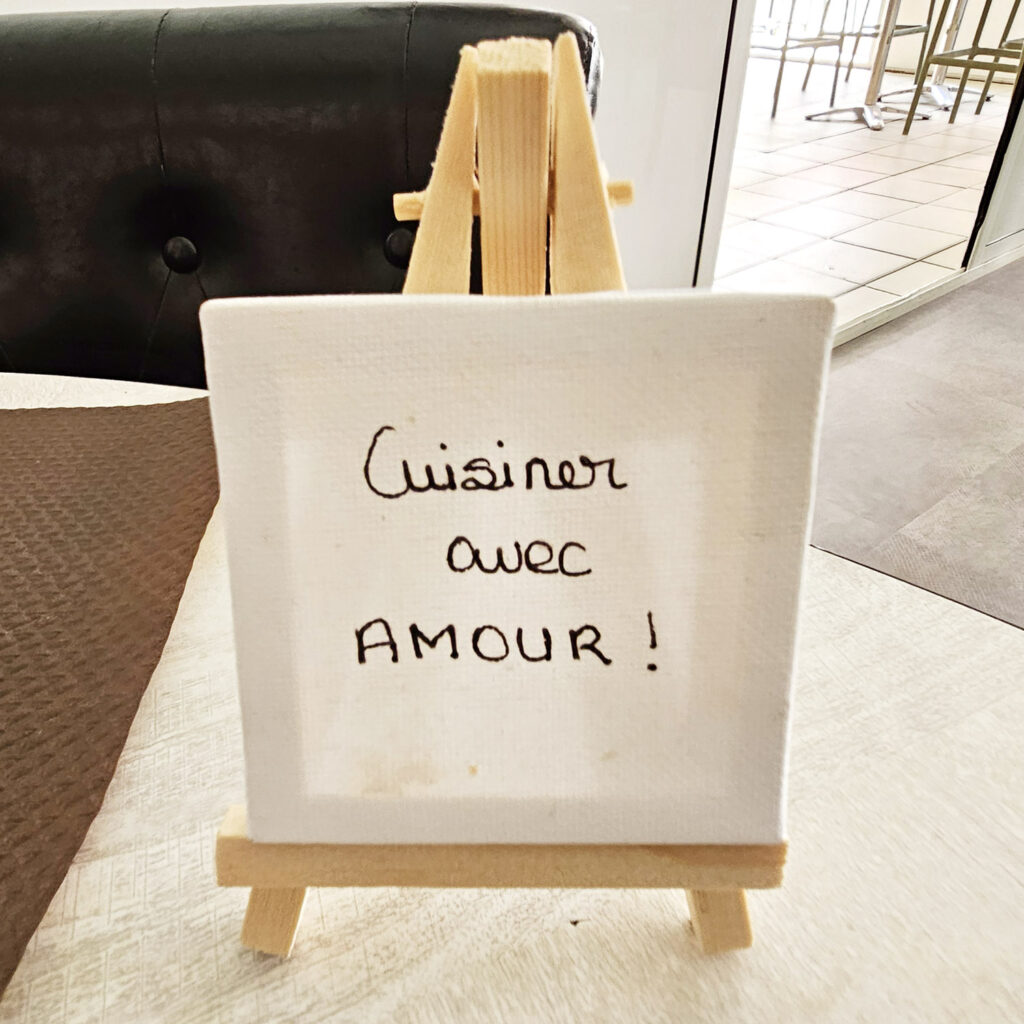 Cuisiner
avec
AMOUR !